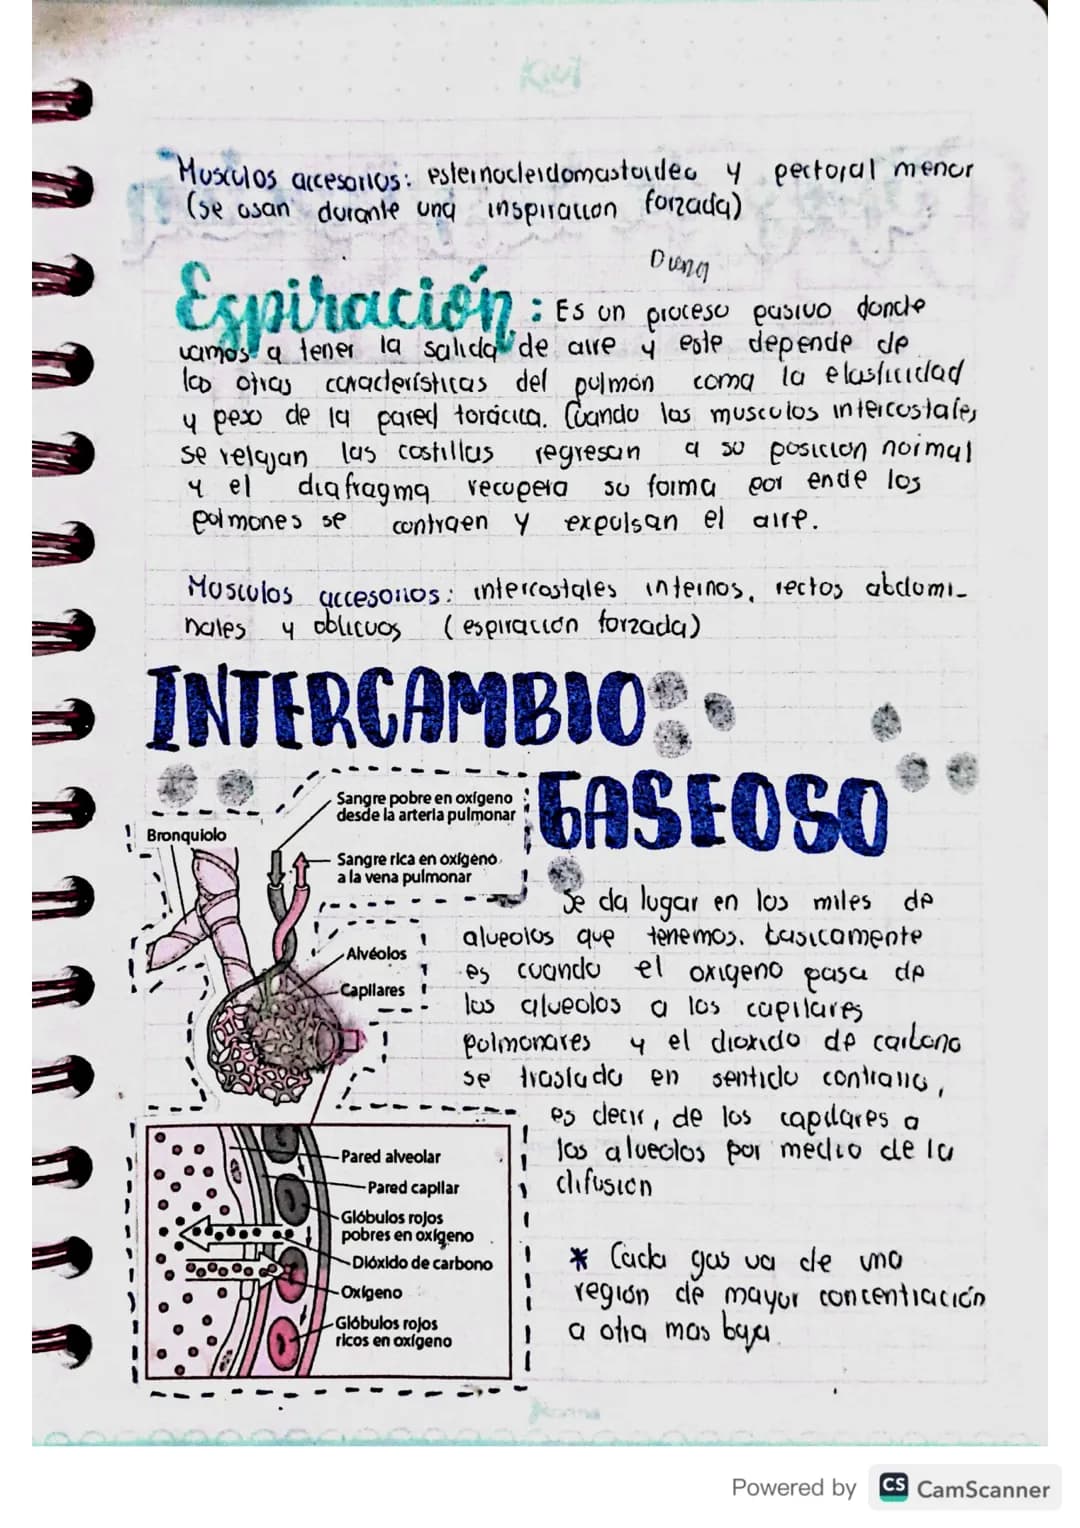 Kiwi
Musculos accesorios: esternocleidomastoideo y pectoral menor
(se usan durante una inspiración forzada)
Espiración: Es un proceso pasivo donde
vamos a tener la salida de aire y este depende de
las otras características del pulmón como la elasticidad
y peso de la pared torácica. Cuando los musculos intercostales
se relajan las costillas regresan a su posicion normal
y el diafragma recupera su forma por ende los
pulmones se contraen y expulsan el aire.
Musculos accesorios: intercostales internos, rectos abdomi-
nales y oblicuos (espiración forzada)
INTERCAMBIO
GASEOSO
Sangre pobre en oxígeno
desde la arteria pulmonar
Bronquiolo
Sangre rica en oxígeno
a la vena pulmonar
Alvéolos
Capilares
Se da lugar en los miles de
alveolos que tenemos. basicamente
es cuando el oxigeno pasa de
los alveolos a los capilares
pulmonares y el dioxido de carbono
se traslada en sentido contrario,
es decir, de los capilares a
los alveolos por medio de la
difusion
Pared alveolar
Pared capilar
Glóbulos rojos
pobres en oxígeno
Dióxido de carbono
Oxígeno
Glóbulos rojos
ricos en oxígeno
* Cada gas va de una
región de mayor concentración
a otra mas baja.
Powered by CS CamScanner